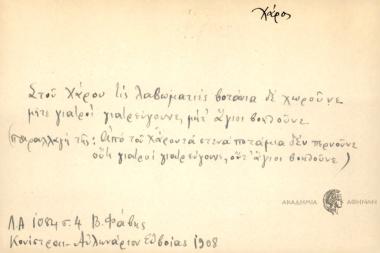 Χάρος
Στοῦ Χάρου τὶς λαβωματιὲς βοτάνια δὲ χωροῦνε
μήτε γιατροὶ γιατρεύγουνε, μήτ' ἅγιοι βοηθοῦνε
(παραλλαγὴ της: Ἀπὸ τοῦ Χάροντα στενὰ ποτάμια δὲν περνοῦνε
οὔτε γιατροὶ γιατρεύγουνε, οὔτ' ἅγιοι βοηθοῦνε)
ΑΚΑΔΗΜΙΑ ΑΘΗΝΩΝ
ΛΑ 1084 σ. 4 Β. Φάβης
Κονίστραι - Αὐλωνάριον Εὐβοίας 1908